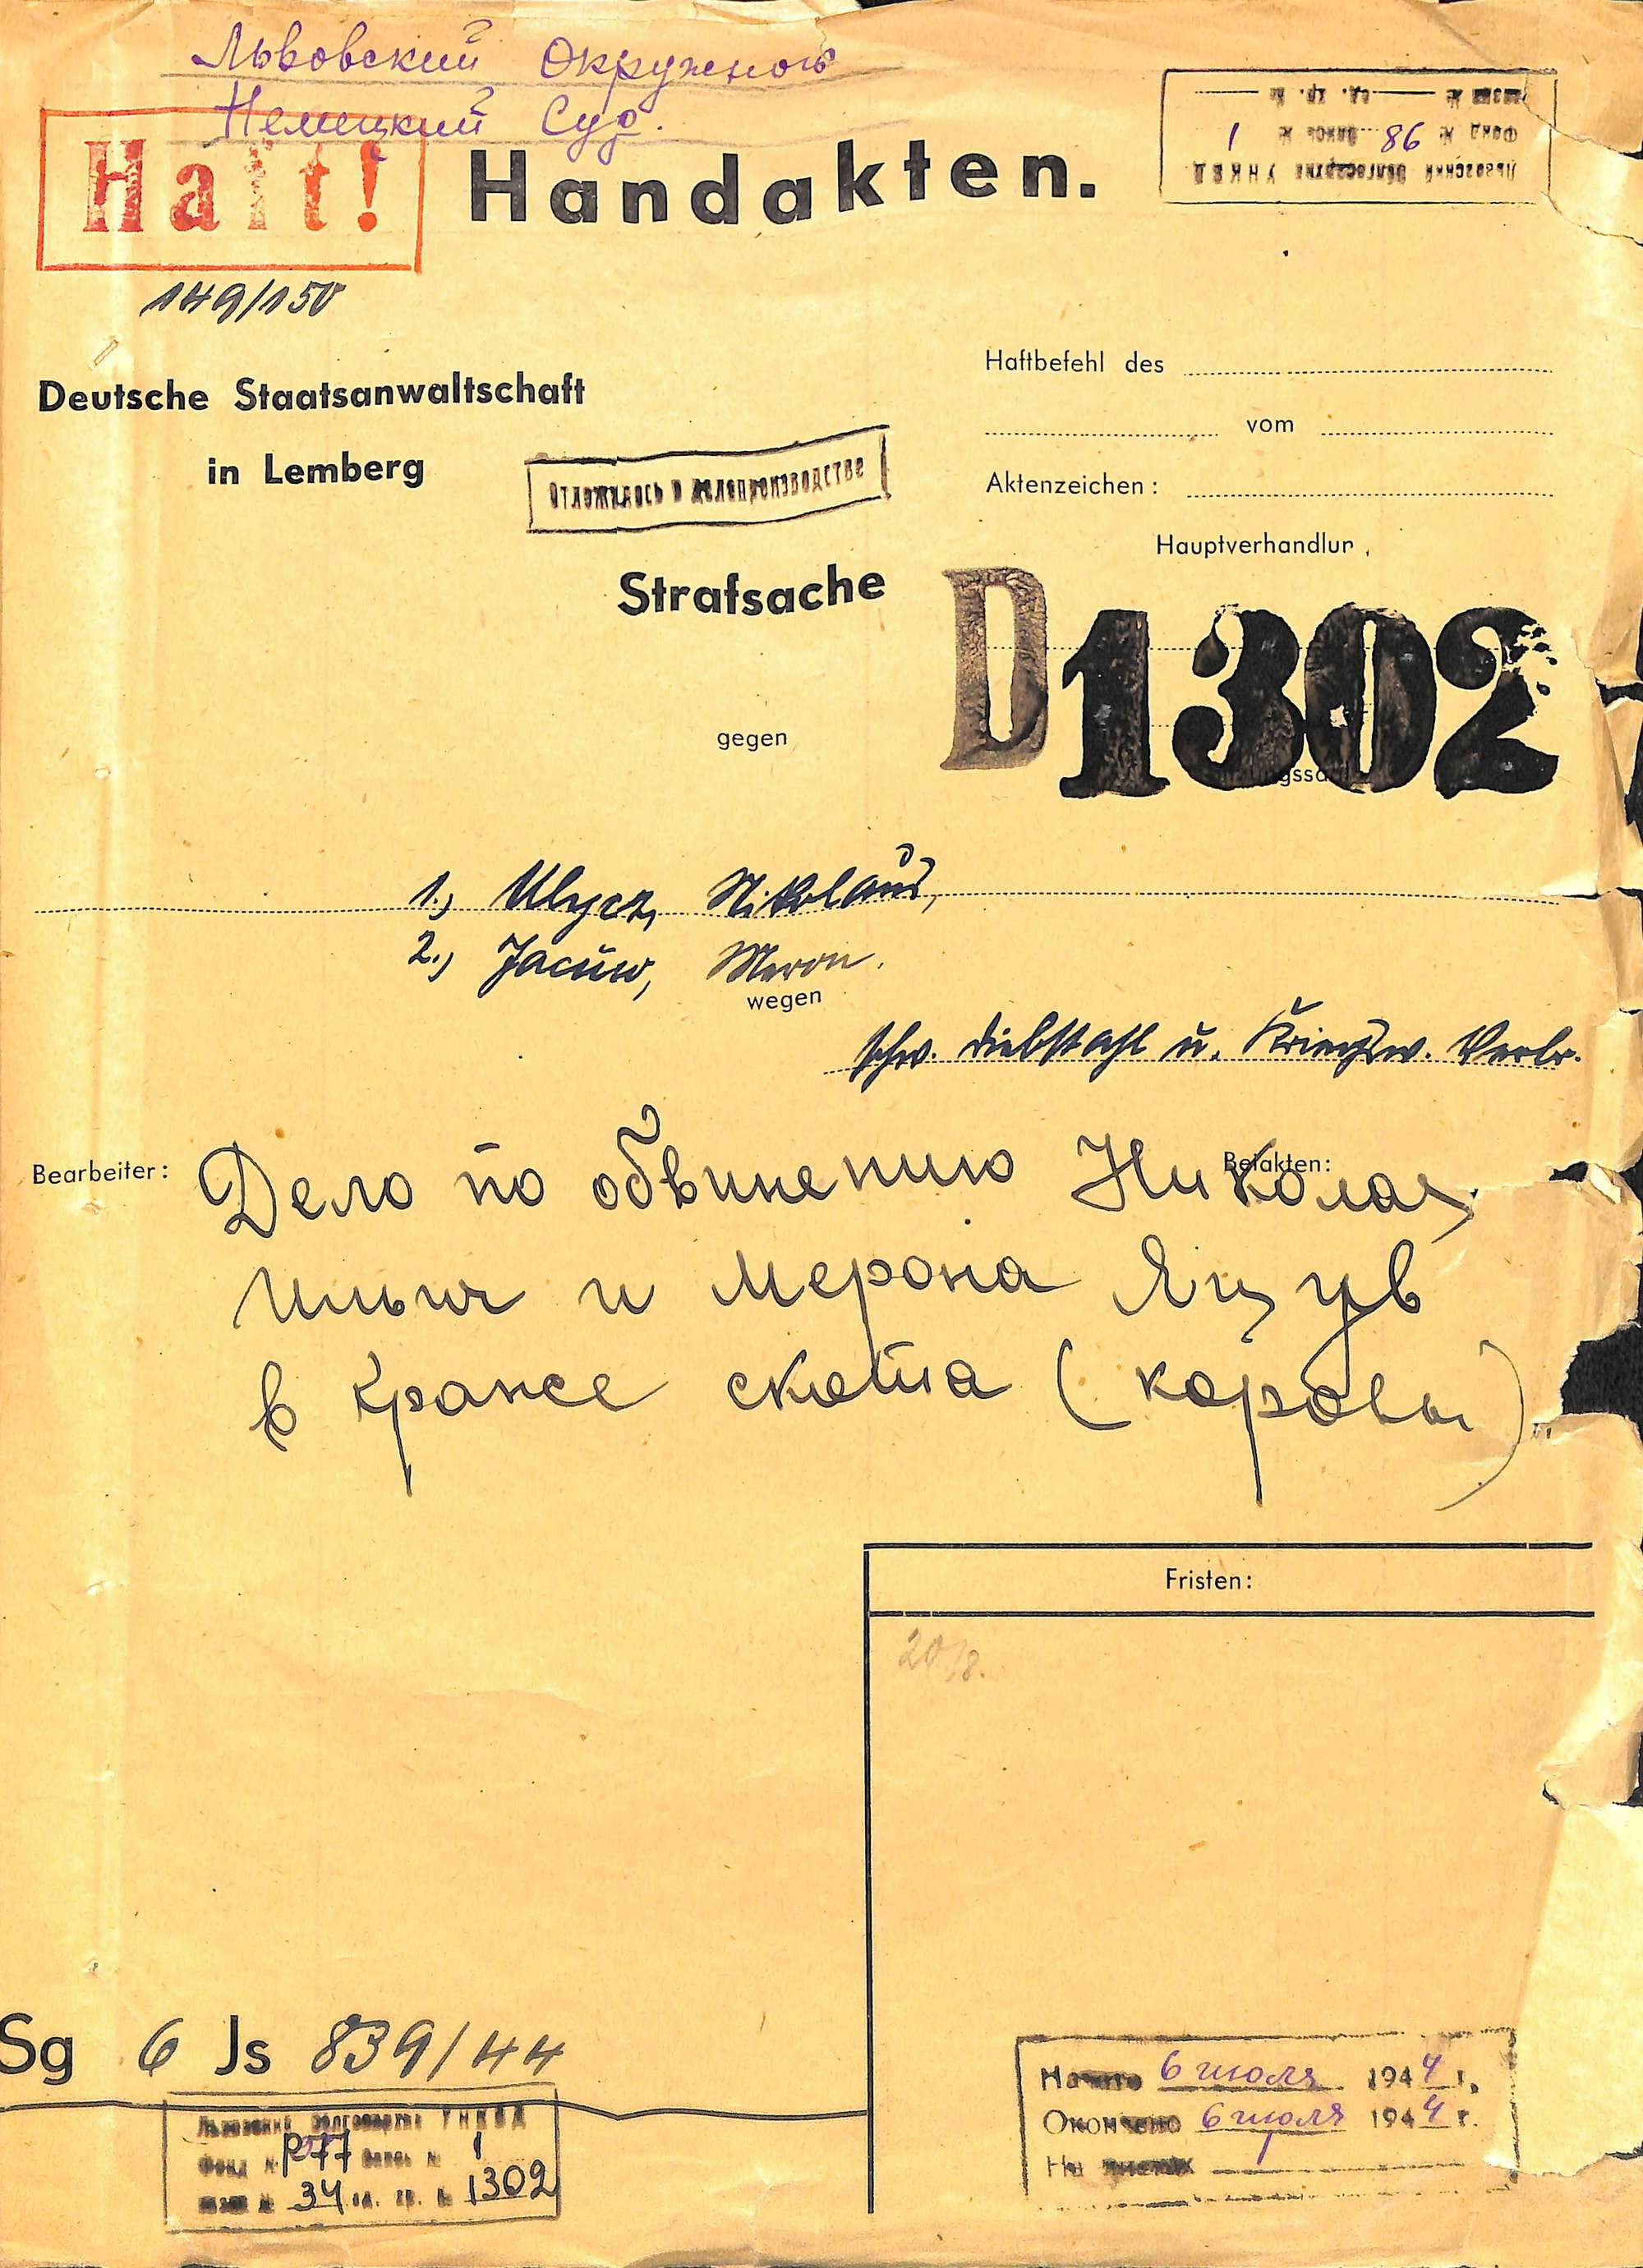 Львовский Окружной
Немецкий Суд.
Haft!
Handakten.
Львовский Облгосархив УНКВД
Фонд № 86 Опись № 1
связки № ед. хр. №
149/150
Deutsche Staatsanwaltschaft
in Lemberg
Отложилось в делопроизводстве
Haftbefehl des
vom
Aktenzeichen:
Hauptverhandlun
Strafsache
D1302
gegen
1.) Ulycz, Nikolaus,
2.) Jacuw, Meron.
wegen
schw. Diebstahl u. Kriegsw. Verbr.
Bearbeiter:
Beiakten:
Дело по обвинению Николая
Ильич и Мерона Яцув
в краже скота (коровы)
Fristen:
20/8.
Sg 6 Js 839/44
Львовский Облгосархив УНКВД
Фонд № Р77 Опись № 1
связки № 34 ед. хр. № 1302
Начато 6 июля 1944 г.
Окончено 6 июля 1944 г.
На листах 1